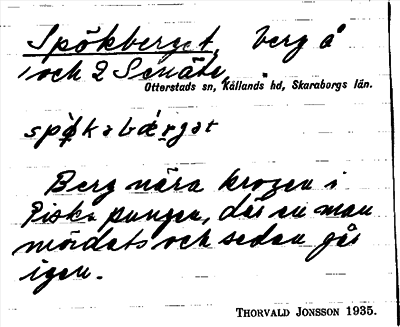 Spökberget, berg å
1 och 2 Senäte
Otterstads sn, Kållands hd, Skaraborgs län.
spø̀kabæ̀rgət
Berg nära krogen i
Fiskapungen, där en man
mördats och sedan går
igen.
THORVALD JONSSON 1935.